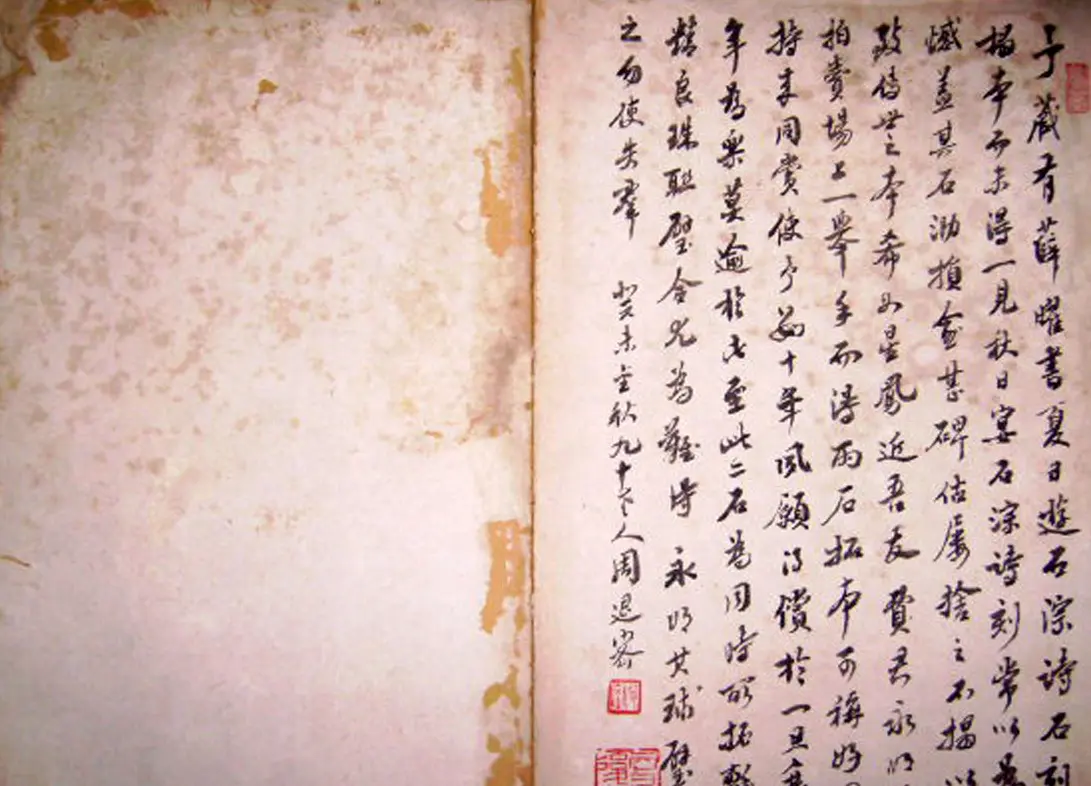 予藏有薛曜書夏日遊石淙詩石刻
搨本而未得一見秋日宴石淙詩刻常以為
憾蓋其石泐損甚碑估屢捨之不搨以
致傳世之本希如星鳳近吾友費君永明
拍賣場上一舉手而得兩石拓本可稱好
持來同賞使予數十年夙願得償於一旦
年為樂莫逾於此至此二石為同時所拓
精良珠聯璧合尤為難得 永明其球璧
之勿使失羣 癸未金秋九十人周退密